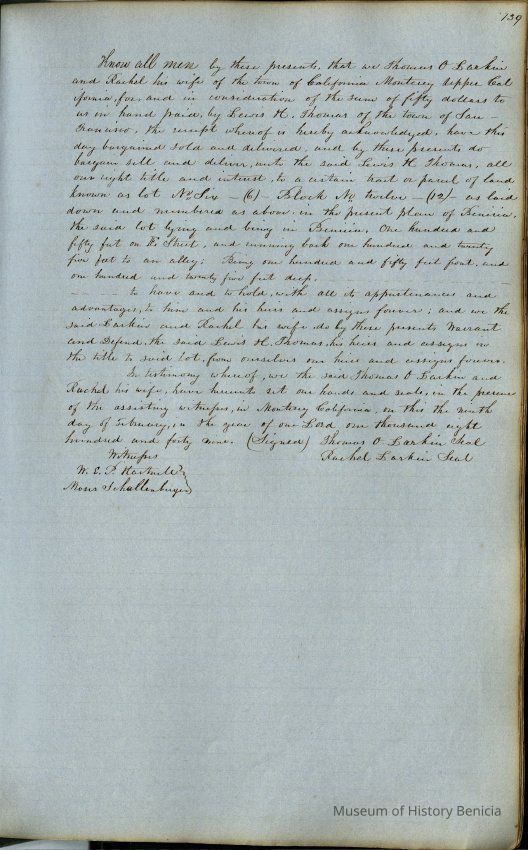 139
Know all men by these presents, that we Thomas O Larkin
and Rachel his wife of the town of California Monterey upper Cal
ifornia, for, and in consideration of the sum of fifty dollars to
us in hand paid, by Lewis H. Thomas of the town of San
Francisco, the receipt whereof is hereby acknowledged, have this
day bargained sold and delivered, and by these presents do
bargain sell and deliver, unto the said Lewis H Thomas, all
our right title and interest, to a certain tract or parcel of land
known as lot No Six — (6) — Block No twelve — (12) — as laid
down and numbered as above in the present plan of Benicia,
the said lot lying and being in Benicia, One hundred and
fifty feet on Street, and running back one hundred and twenty
five feet to an alley: Being one hundred and fifty feet front, and
one hundred and twenty five feet deep.
to have and to hold, with all its appurtenances and
advantages, to him and his heirs and assigns forever; and we the
said Larkin and Rachel his wife, do by these presents Warrant
and Defend, the said Lewis H. Thomas, his heirs and assigns in
the title to said lot, from ourselves our heirs and assigns forever.
In testimony whereof, we the said Thomas O Larkin and
Rachel his wife, have hereunto set our hands and seals, in the presence
of the assisting witnesses, in Monterey California, on this the ninth
day of February, in the year of our Lord one thousand eight
hundred and forty nine. (Signed) Thomas O Larkin Seal
Witnesses Rachel Larkin Seal
W. E. P. Hartnell
Moses Schallenberger
Museum of History Benicia